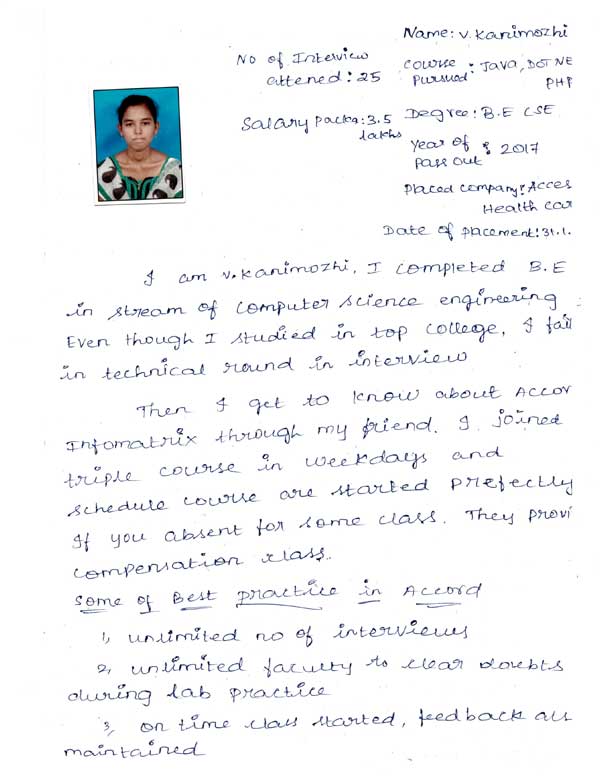 Name: V. Kanimozhi
No of Interview
attened: 25
course : Java, DOT NE
Pursued: PHP
Salary Packa: 3.5
lakhs
Degree: B.E CSE
Year of : 2017
Pass out
Placed Company: Acces
Health car
Date of placement: 31.1.
I am V. Kanimozhi, I completed B.E
in stream of computer science engineering
Even though I studied in top college, I fail
in technical round in interview
Then I get to know about Accor
Infomatrix through my friend. I joined
triple course in weekdays and
schedule course are started Prefectly
If you absent for some class. They provi
compensation class..
Some of Best practice in Accord
1, unlimited no of interviews
2, unlimited faculty to clear doubts
during lab practice
3, on time class started, feedback als
maintained